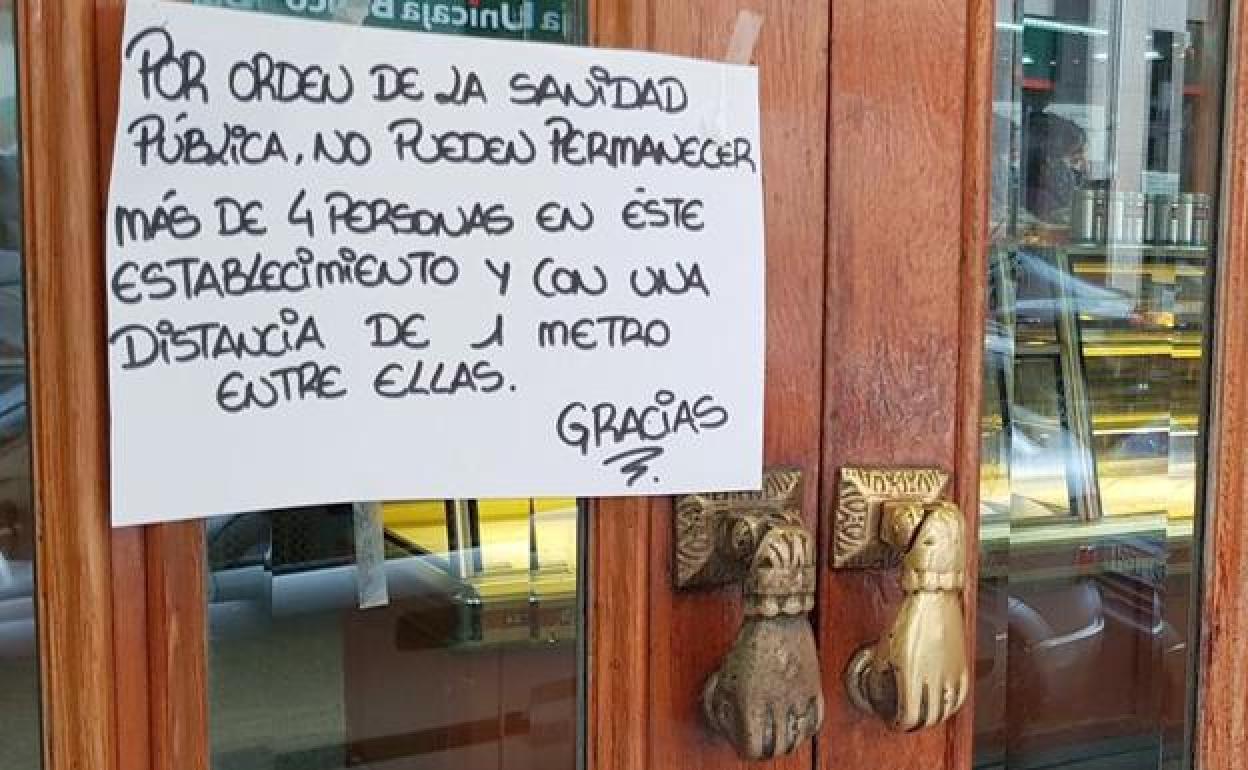 a Unicaja Banco
POR ORDEN DE LA SANIDAD
PÚBLICA, NO PUEDEN PERMANECER
MÁS DE 4 PERSONAS EN ÉSTE
ESTABLECIMIENTO Y CON UNA
DISTANCIA DE 1 METRO
ENTRE ELLAS.
GRACIAS